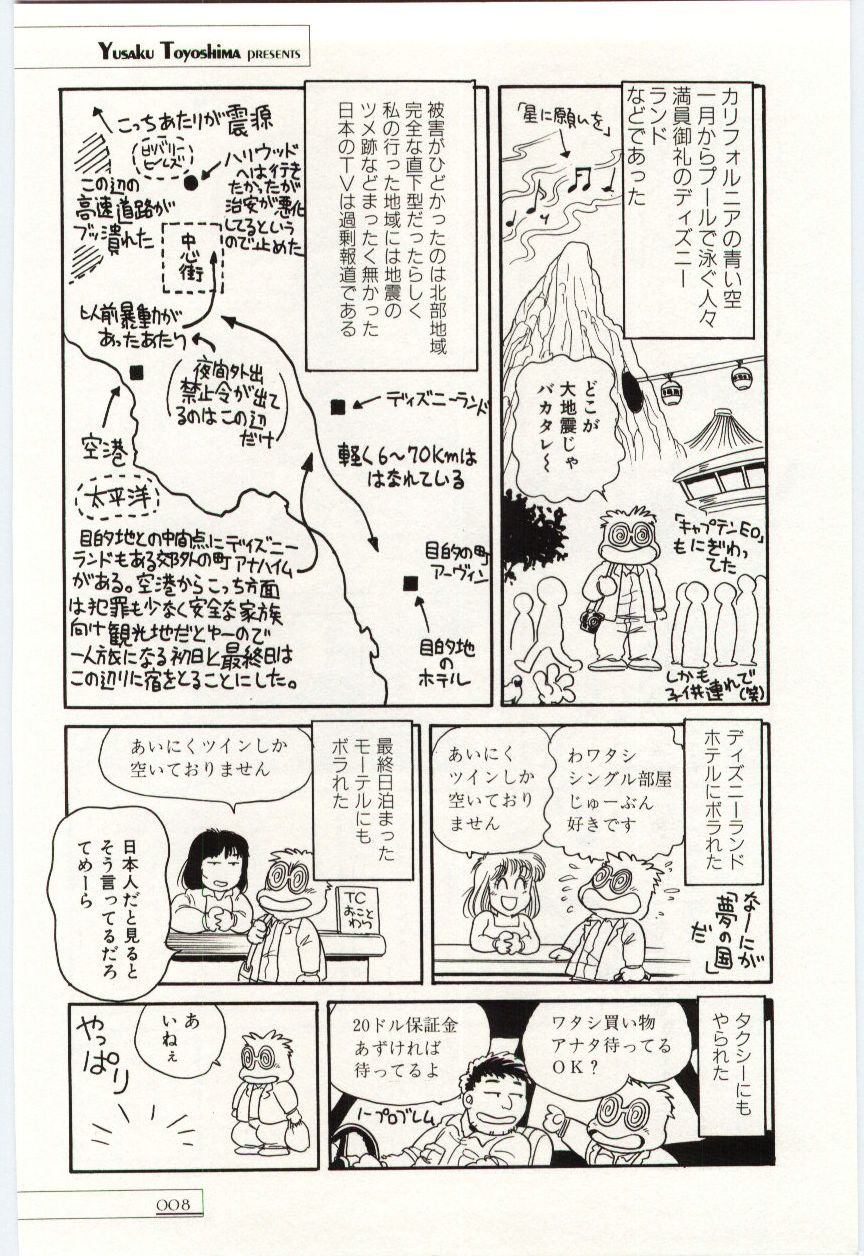 YUSAKU TOYOSHIMA PRESENTS
カリフォルニアの青い空
一月からプールで泳ぐ人々
満員御礼のディズニー
ランド
などであった
「星に願いを」
どこが
大地震じゃ
バカタレ〜
「キャプテンEO」
もにぎわっ
てた
しかも
子供連れで
(笑)
被害がひどかったのは北部地域
完全な直下型だったらしく
私の行った地域には地震の
ツメ跡などまったく無かった
日本のTVは過剰報道である
こっちあたりが震源
ビバリー
ヒルズ
ハリウッド
へは行き
たかったが
治安が悪化
してるという
ので止めた
この辺の
高速道路が
ブッ潰れた
中心街
以前暴動が
あったあたり
夜間外出
禁止令が出て
るのはこの辺
だけ
空港
太平洋
ディズニーランド
軽く6〜70Kmは
はなれている
目的の町
アーヴィン
目的地
の
ホテル
目的地との中間点にディズニー
ランドもある郊外の町アナハイム
がある。空港からこっち方面
は犯罪も少なく安全な家族
向け観光地だとゆーので
一人旅になる初日と最終日は
この辺りに宿をとることにした。
ディズニーランド
ホテルにボラれた
わワタシ
シングル部屋
じゅーぶん
好きです
あいにく
ツインしか
空いており
ません
なーにが
「夢の国」
だ
最終日泊まった
モーテルにも
ボラれた
あいにくツインしか
空いておりません
TC
おこと
わり
日本人だと見ると
そう言ってるだろ
てめーら
タクシーにも
やられた
ワタシ買い物
アナタ待ってる
OK?
20ドル保証金
あずければ
待ってるよ
ノープロブレム
あ
いねぇ
やっぱり
008